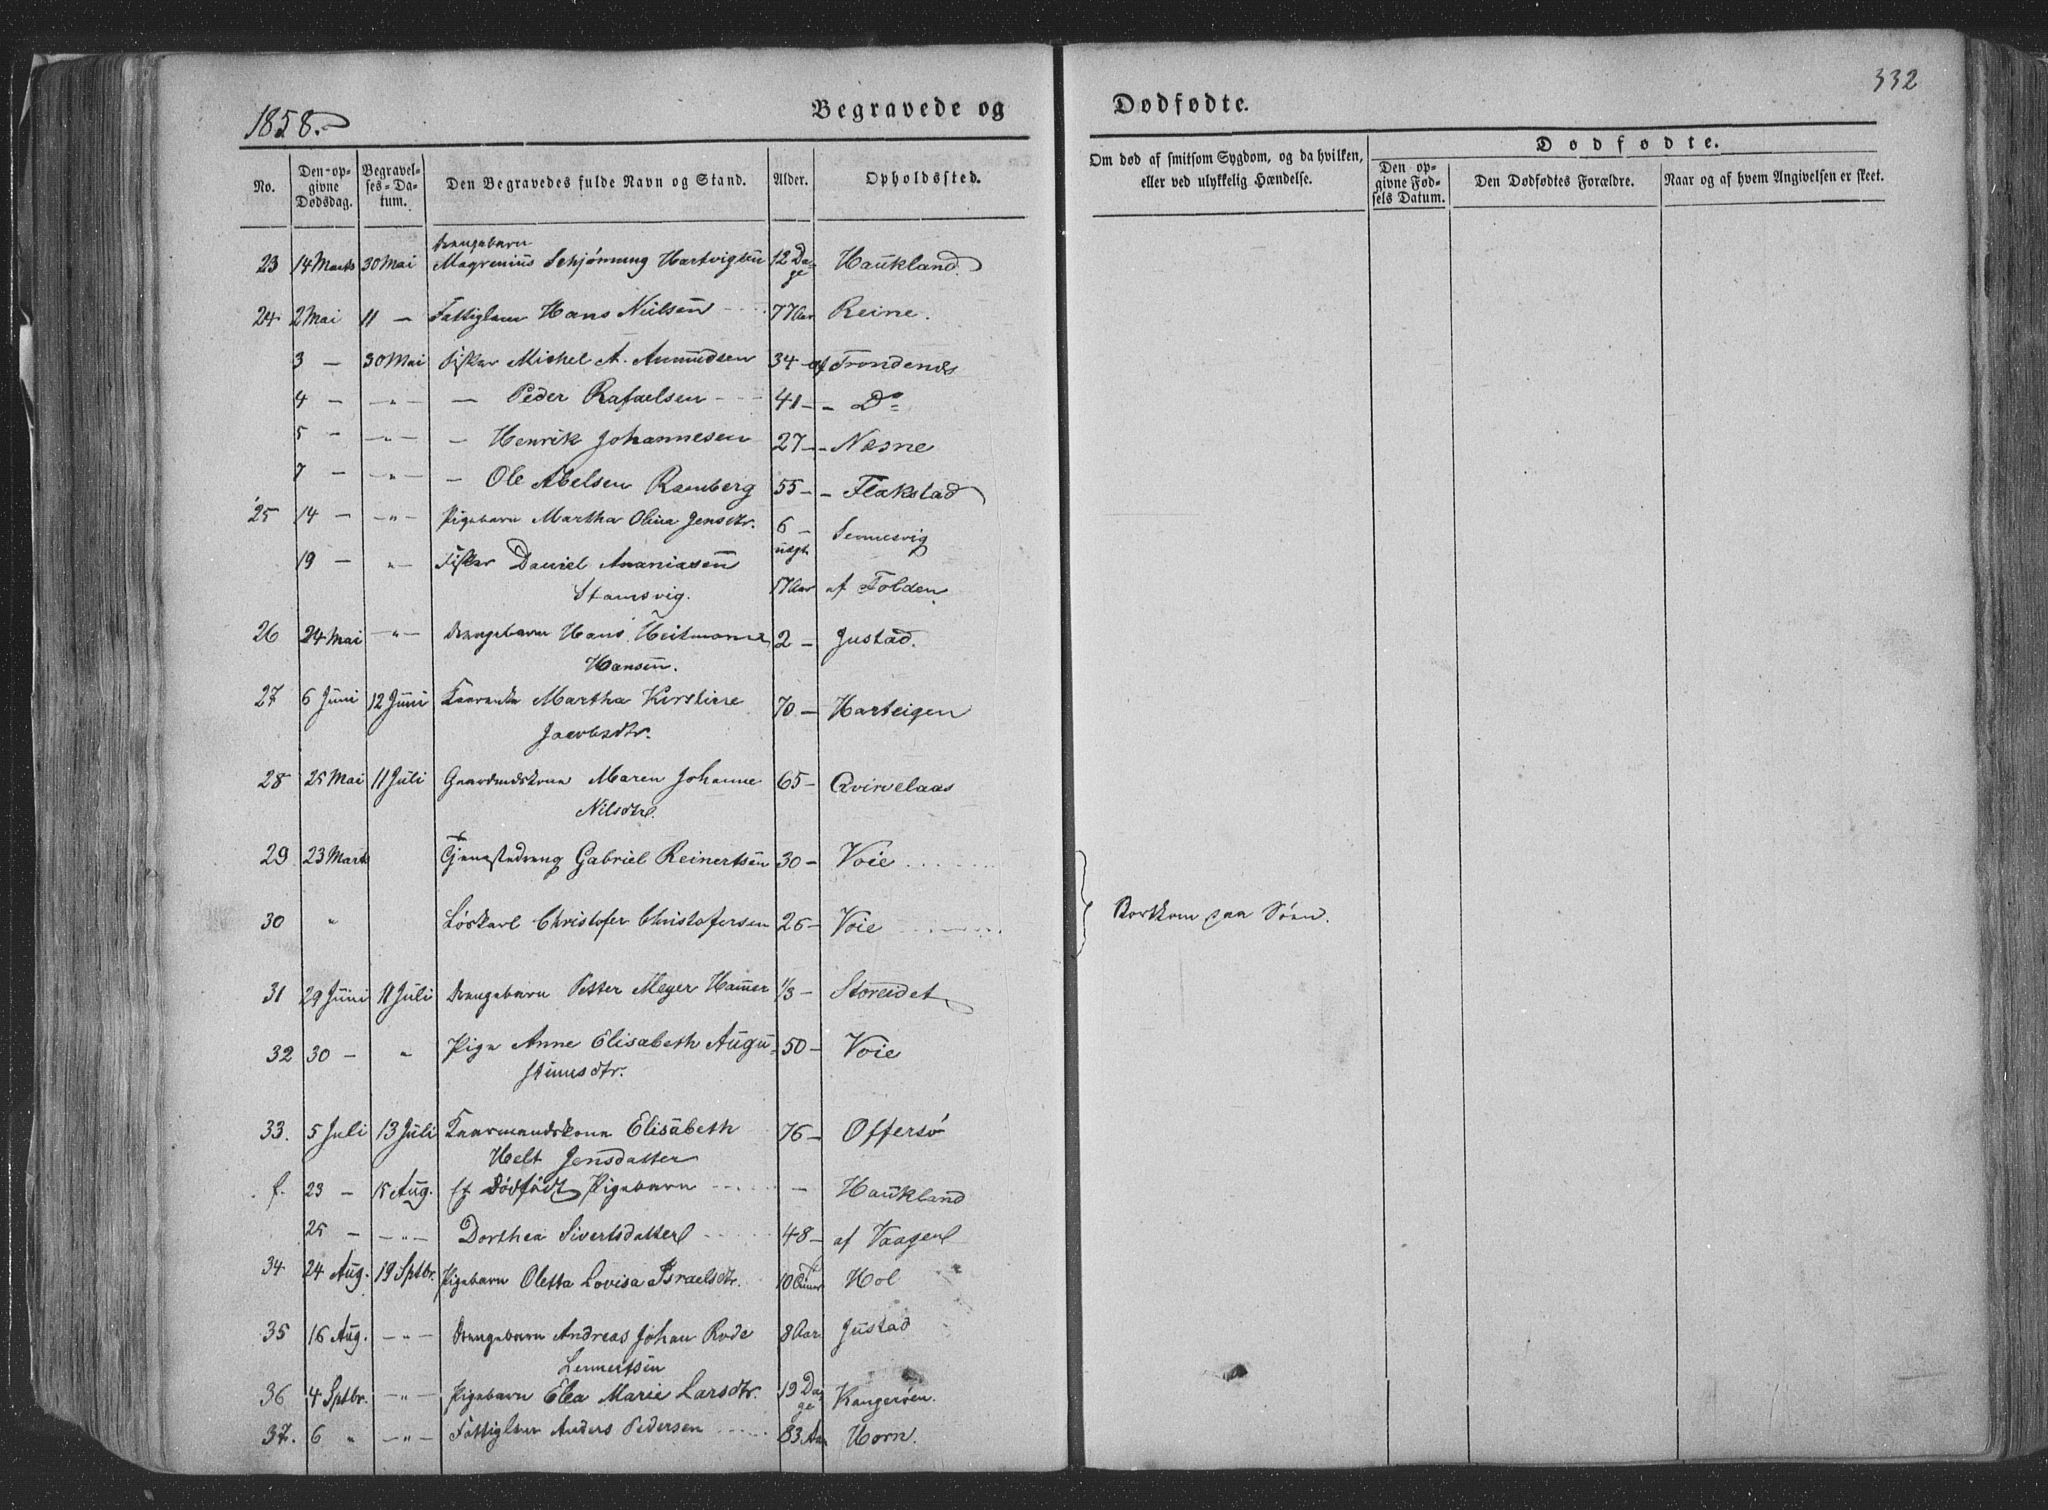 332
1858.
Begravede og Dødfødte.
No.
Den opgivne Dødsdag.
Begravelses-Datum.
Den Begravedes fulde Navn og Stand.
Alder.
Opholdssted.
Om død af smitsom Sygdom, og da hvilken, eller ved ulykkelig Hændelse.
Dødfødte.
Den opgivne Fødsels Datum.
Den Dødfødtes Forældre.
Naar og af hvem Angivelsen er skeet.
Drengebarn
23 14 Marts 30 Mai Magrenius Schjønning Hartvigsen 12 Dage Haukland
24 2 Mai 11 — Fattiglem Hans Nielsen 77 Aar Reine.
3 — 30 Mai Fisker Michel A. Amundsen 34 — af Trondenæs
4 — — " — — Peder Rafaelsen 41 — — Do
5 — — " — — Henrik Johannesen 27 — — Næsne
7 — — " — — Ole Abelsen Ramberg 55 — — Flakstad
25 14 — — " — Pigebarn Martha Olina Jensdtr. 6 — Sennesvig
19 — " — Fisker Daniel Ananiasen
Stamsvig. 17 Aar af Folden
26 24 Mai — " — Drengebarn Hans Heitmann 2 — Justad.
Hansen.
27 6 Juni 12 Juni Martha Kirstine 70 — Harteigen
Jacobsdtr.
28 25 Mai 11 Juli Gaardmdskone Maren Johanne 65 — Qvirvelaas
Nilsdtr.
29 23 Marts Tjenestedreng Gabriel Reinertsen 30 — Voie
30 " Løskarl Christofer Christofersen 26 — Voie
Bortkom paa Søen.
31 29 Juni 11 Juli Drengebarn Petter Meyer Hamer 1/3 — Storeidet
32 30 — " Pige Anne Elisabeth Augu- 50 — Voie
stinusdtr.
33. 5 Juli 13 Juli Kaarmandskone Elisabeth 76 — Offersø
Helt Jensdatter
f. 23 — 15 Aug. Et Dødfødt Pigebarn — Haukland
25 — — " — Dorthea Sivertsdatter 48 — af Vaagen
34 24 Aug. 19 Sptbr. Pigebarn Oletta Lovisa Israelsdtr. Hol
35 16 Aug. — " — Drengebarn Andreas Johan Rode 8 Aar Justad
Lennertsen
36 4 Sptbr. — " — Pigebarn Elea Marie Larsdtr. 19 Dage Kangerøen.
37. 6 " — " — Fattiglem Anders Pedersen 83 Aar Horn.